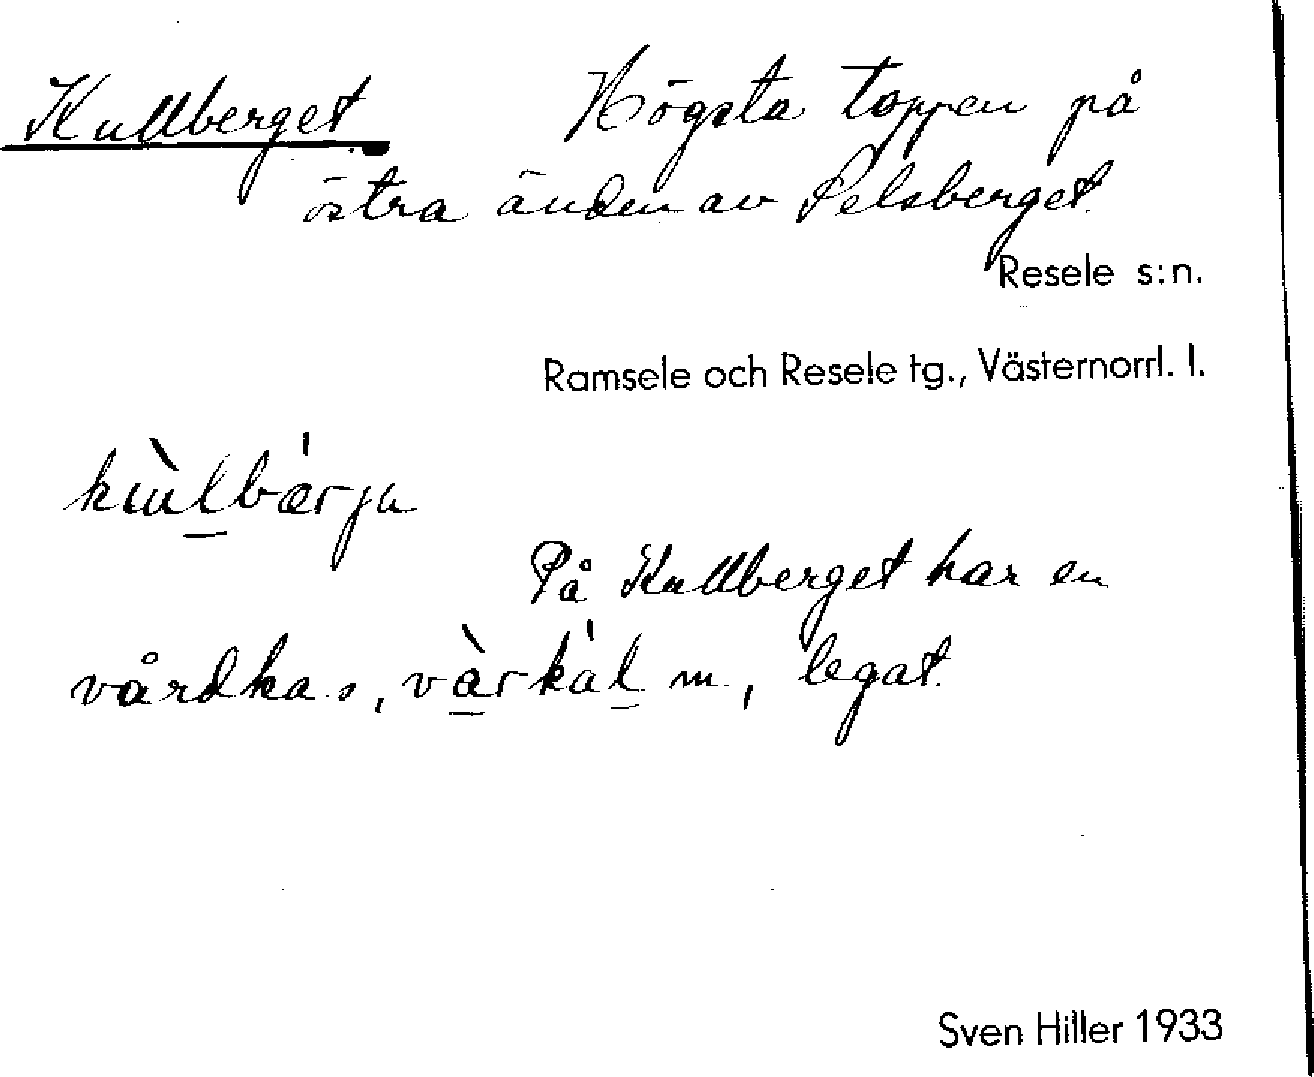 Kullberget Högsta toppen på
östra änden av Pelsberget.
Resele s:n.
Ramsele och Resele tg., Västernorrl. l.
På Kullberget har en
vårdkas, m., legat.
Sven Hiller 1933